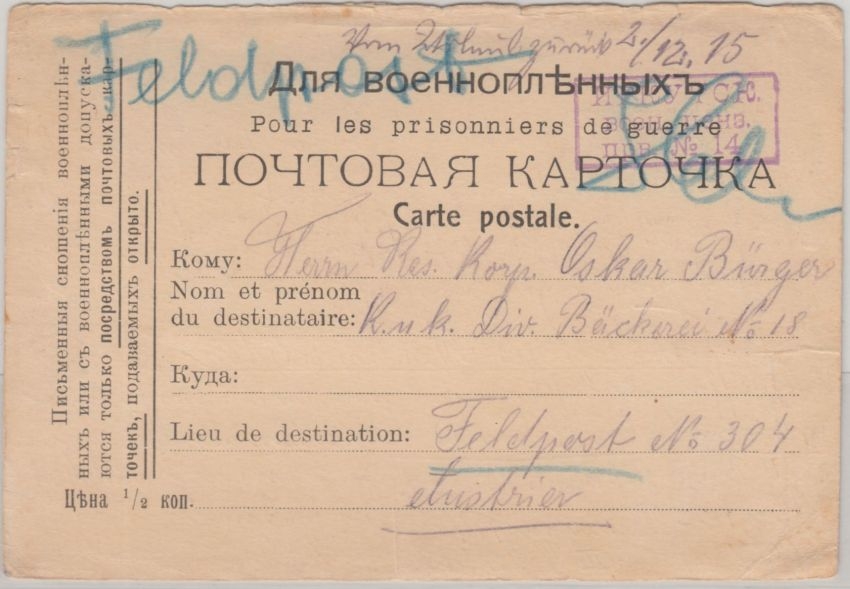 Vom Urlaub zurück 2./12. 15
Feldpost
Для военноплѣнныхъ
Pour les prisonniers de guerre
ПОЧТОВАЯ КАРТОЧКА
Carte postale.
ИРКУТСК.
воен. ценз.
№ 14
Кому: Herrn Res. Korp. Oskar Bürger
Nom et prénom
du destinataire: K. u. k. Div. Bäckerei No 18
Куда:
Lieu de destination: Feldpost No 304
Austrien
Письменныя сношенія военноплѣн-
ныхъ или съ военноплѣнными допуска-
ются только посредствомъ почтовыхъ кар-
точекъ, подаваемыхъ открыто.
Цѣна 1/2 коп.